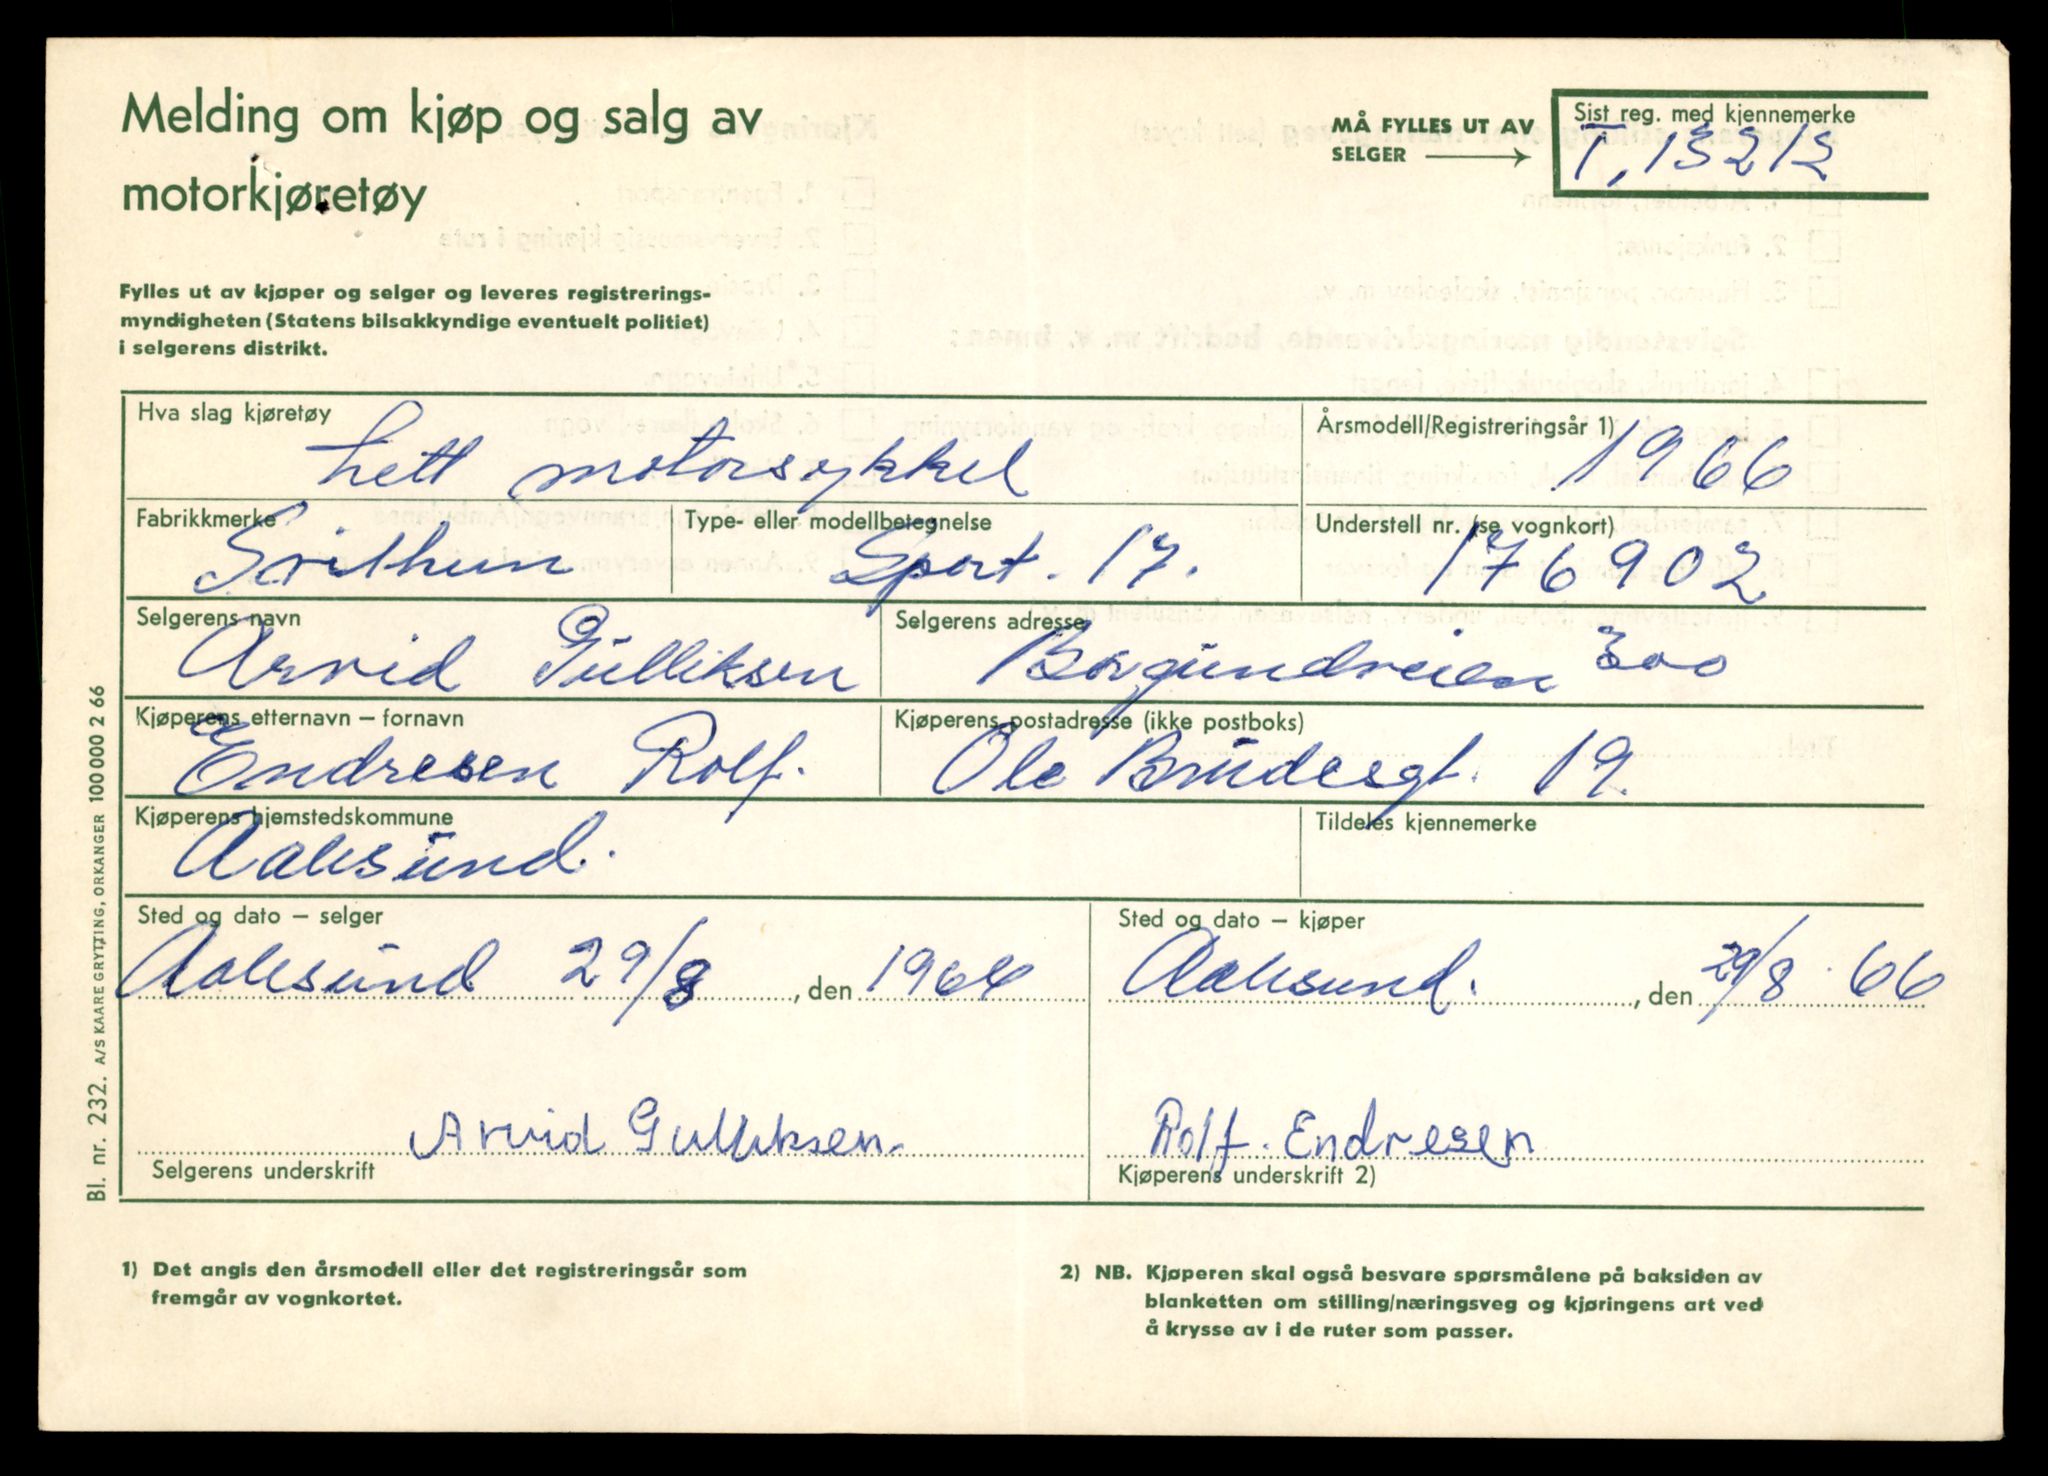 Melding om kjøp og salg av
motorkjøretøy
MÅ FYLLES UT AV
SELGER
Sist reg. med kjennemerke
T, 13213
Fylles ut av kjøper og selger og leveres registrerings-
myndigheten (Statens bilsakkyndige eventuelt politiet)
i selgerens distrikt.
Hva slag kjøretøy
Lett motorsykkel
Årsmodell/Registreringsår 1)
1966
Fabrikkmerke
Svithun
Type- eller modellbetegnelse
Sport. 17.
Understell nr. (se vognkort)
176902
Selgerens navn
Arvid Gulliksen
Selgerens adresse
Borgundveien 300
Kjøperens etternavn – fornavn
Endresen Rolf.
Kjøperens postadresse (ikke postboks)
Ole Brudesgt. 19.
Kjøperens hjemstedskommune
Aalesund.
Tildeles kjennemerke
Sted og dato – selger
Aalesund 29/8, den 1966
Sted og dato – kjøper
Aalesund., den 29/8. 66
Arvid Gulliksen.
Selgerens underskrift
Rolf. Endresen
Kjøperens underskrift 2)
1) Det angis den årsmodell eller det registreringsår som
fremgår av vognkortet.
2) NB. Kjøperen skal også besvare spørsmålene på baksiden av
blanketten om stilling/næringsveg og kjøringens art ved
å krysse av i de ruter som passer.
Bl. nr. 232. A/S KAARE GRYTTING, ORKANGER 100 000 2 66